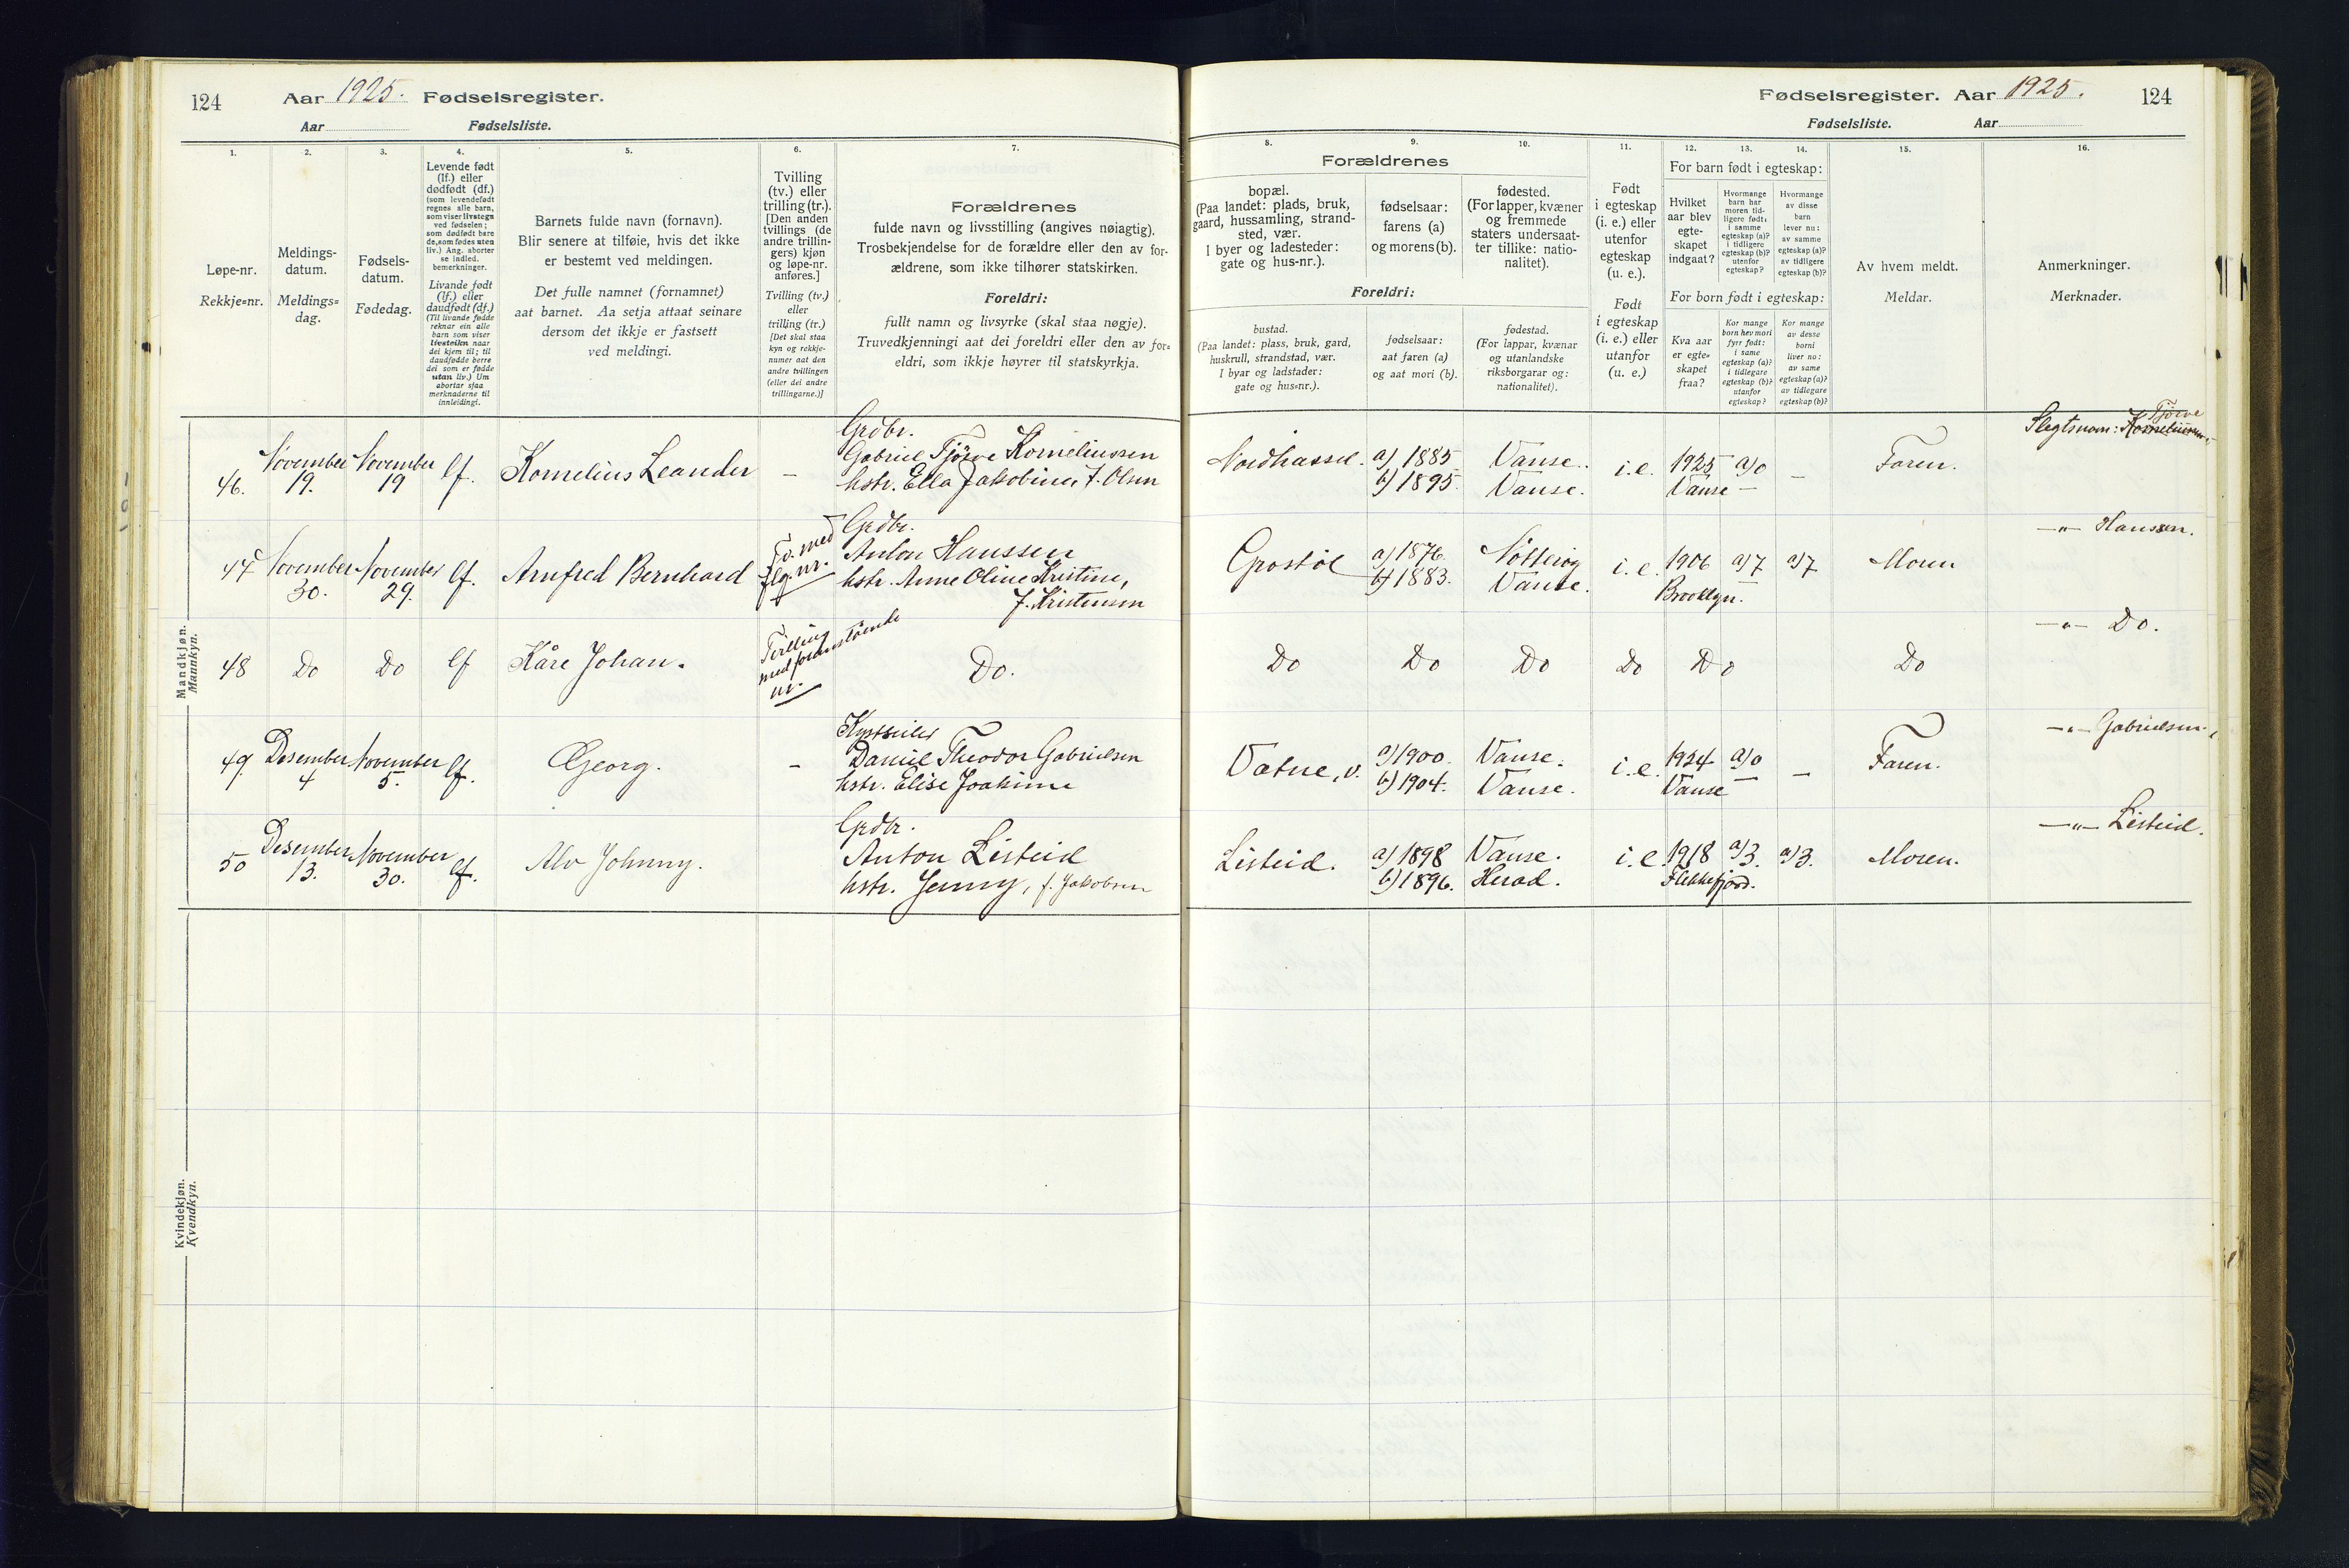 124 Aar 1925. Fødselsregister.
Aar Fødselsliste.
1. 2. 3. 4. 5. 6. 7.
Løpe-nr.
Rekkje-nr.
Meldings-
datum.
Meldings-
dag.
Fødsels-
datum.
Fødedag.
Levende født
(lf.) eller
dødfødt (df.)
(som levendefødt
regnes alle barn,
som viser livstegn
ved fødselen;
som dødfødt bare
de, som fødes uten
liv.) Ang. aborter
se indled.
bemerkninger.
Livande født
(lf.) eller
daudfødt (df.)
(Til livande fødde
reknar ein alle
barn som viser
livsteikn naar
dei kjem til; til
daudfødde berre
dei som er fødde
utan liv.) Um
abortar sjaa
merknaderne til
innleidingi.
Barnets fulde navn (fornavn).
Blir senere at tilføie, hvis det ikke
er bestemt ved meldingen.
Det fulle namnet (fornamnet)
aat barnet. Aa setja attaat seinare
dersom det ikkje er fastsett
ved meldingi.
Tvilling
(tv.) eller
trilling (tr.).
[Den anden
tvillings (de
andre trillin-
gers) kjøn
og løpe-nr.
anføres.]
Tvilling (tv.)
eller
trilling (tr.)
[Det skal staa
kyn og rekkje-
numer aat den
andre tvillingen
(eller dei andre
trillingarne.)]
Forældrenes
fulde navn og livsstilling (angives nøiagtig).
Trosbekjendelse for de forældre eller den av for-
ældrene, som ikke tilhører statskirken.
Foreldri:
fullt namn og livsyrke (skal staa nøgje).
Truvedkjenningi aat dei foreldri eller den av for-
eldri, som ikkje høyrer til statskyrkja.
Mandkjøn.
Mannkyn.
46. November 19. November 19 lf. Kornelius Leander –
Grdbr.
Gabriel Tjörve Korneliussen
hstr. Ella Jakobine, f. Olsen
47 November 30. November 29. lf. Arnfred Bernhard
Tv. med
flg. nr.
Grdbr.
Anton Hanssen
hstr. Anne Oline Kristine,
f. Kristensen
48 Do Do lf Kåre Johan.
Tvilling
med foranstående
nr.
Do.
49. Desember 4 November 5. lf. Georg. –
Daniel Theodor Gabrielsen
hstr. Elise Joakime
50 Desember 13. November 30. lf. Alv Johnny.
Grdbr.
Anton Listeid
hstr. Jenny, f. Jakobsen
Kvindekjøn.
Kvendkyn.
Fødselsregister. Aar 1925. 124
Fødselsliste. Aar
8. 9. 10. 11. 12. 13. 14. 15. 16.
Forældrenes
bopæl.
(Paa landet: plads, bruk,
gaard, hussamling, strand-
sted, vær.
I byer og ladesteder:
gate og hus-nr.).
fødselsaar:
farens (a)
og morens (b).
fødested.
(For lapper, kvæner
og fremmede
staters undersaat-
ter tillike: natio-
nalitet).
Foreldri:
bustad.
(Paa landet: plass, bruk, gard,
huskrull, strandstad, vær.
I byar og ladstader:
gate og hus-nr.).
fødselsaar:
aat faren (a)
og aat mori (b).
fødestad.
(For lappar, kvænar
og utanlandske
riksborgarar og:
nationalitet).
Født
i egteskap
(i. e.) eller
utenfor
egteskap
(u. e.).
Født
i egteskap
(i. e.) eller
utanfor
(u. e.)
For barn født i egteskap:
Hvilket
aar blev
egte-
skapet
indgaat?
Hvormange
barn har
moren tid-
ligere født:
i samme
egteskap (a)?
i tidligere
egteskap (b)?
utenfor
egteskap?
Hvormange
av disse
barn
lever nu:
av samme
egteskap (a)?
av tidligere
egteskap (b)?
For born født i egteskap:
Kva aar
er egte-
skapet
fraa?
Kor mange
born hev mori
fyrr født:
i same
egteskap (a)?
i tidlegare
egteskap (b)?
utanfor
egteskap?
Kor mange
av desse
borni
liver no:
av same
egteskap (a)?
av tidlegare
egteskap (b)?
Av hvem meldt.
Meldar.
Anmerkninger.
Merknader.
Nordhassel. a) 1885 Vanse. i.e. 1925 a) 0 – Faren. Slegtsnavn: Korneliussen Tjörve
b) 1895. Vanse. Vanse –
Grostøl a) 1876. i.e. 1906 a) 7 a) 7 Moren –"– Hanssen.
b) 1883. Vanse. Brooklyn. –
Do Do Do Do Do Do –"– Do.
Vatne, v. a) 1900. Vanse. i.e. 1924 a) 0 – Faren. –"– Gabrielsen.
b) 1904. Vanse. Vanse –
Listeid. a) 1898 Vanse. i.e 1918 a) 3. a) 3. Moren. –"– Listeid.
b) 1896. Herad. Flekkefjord.